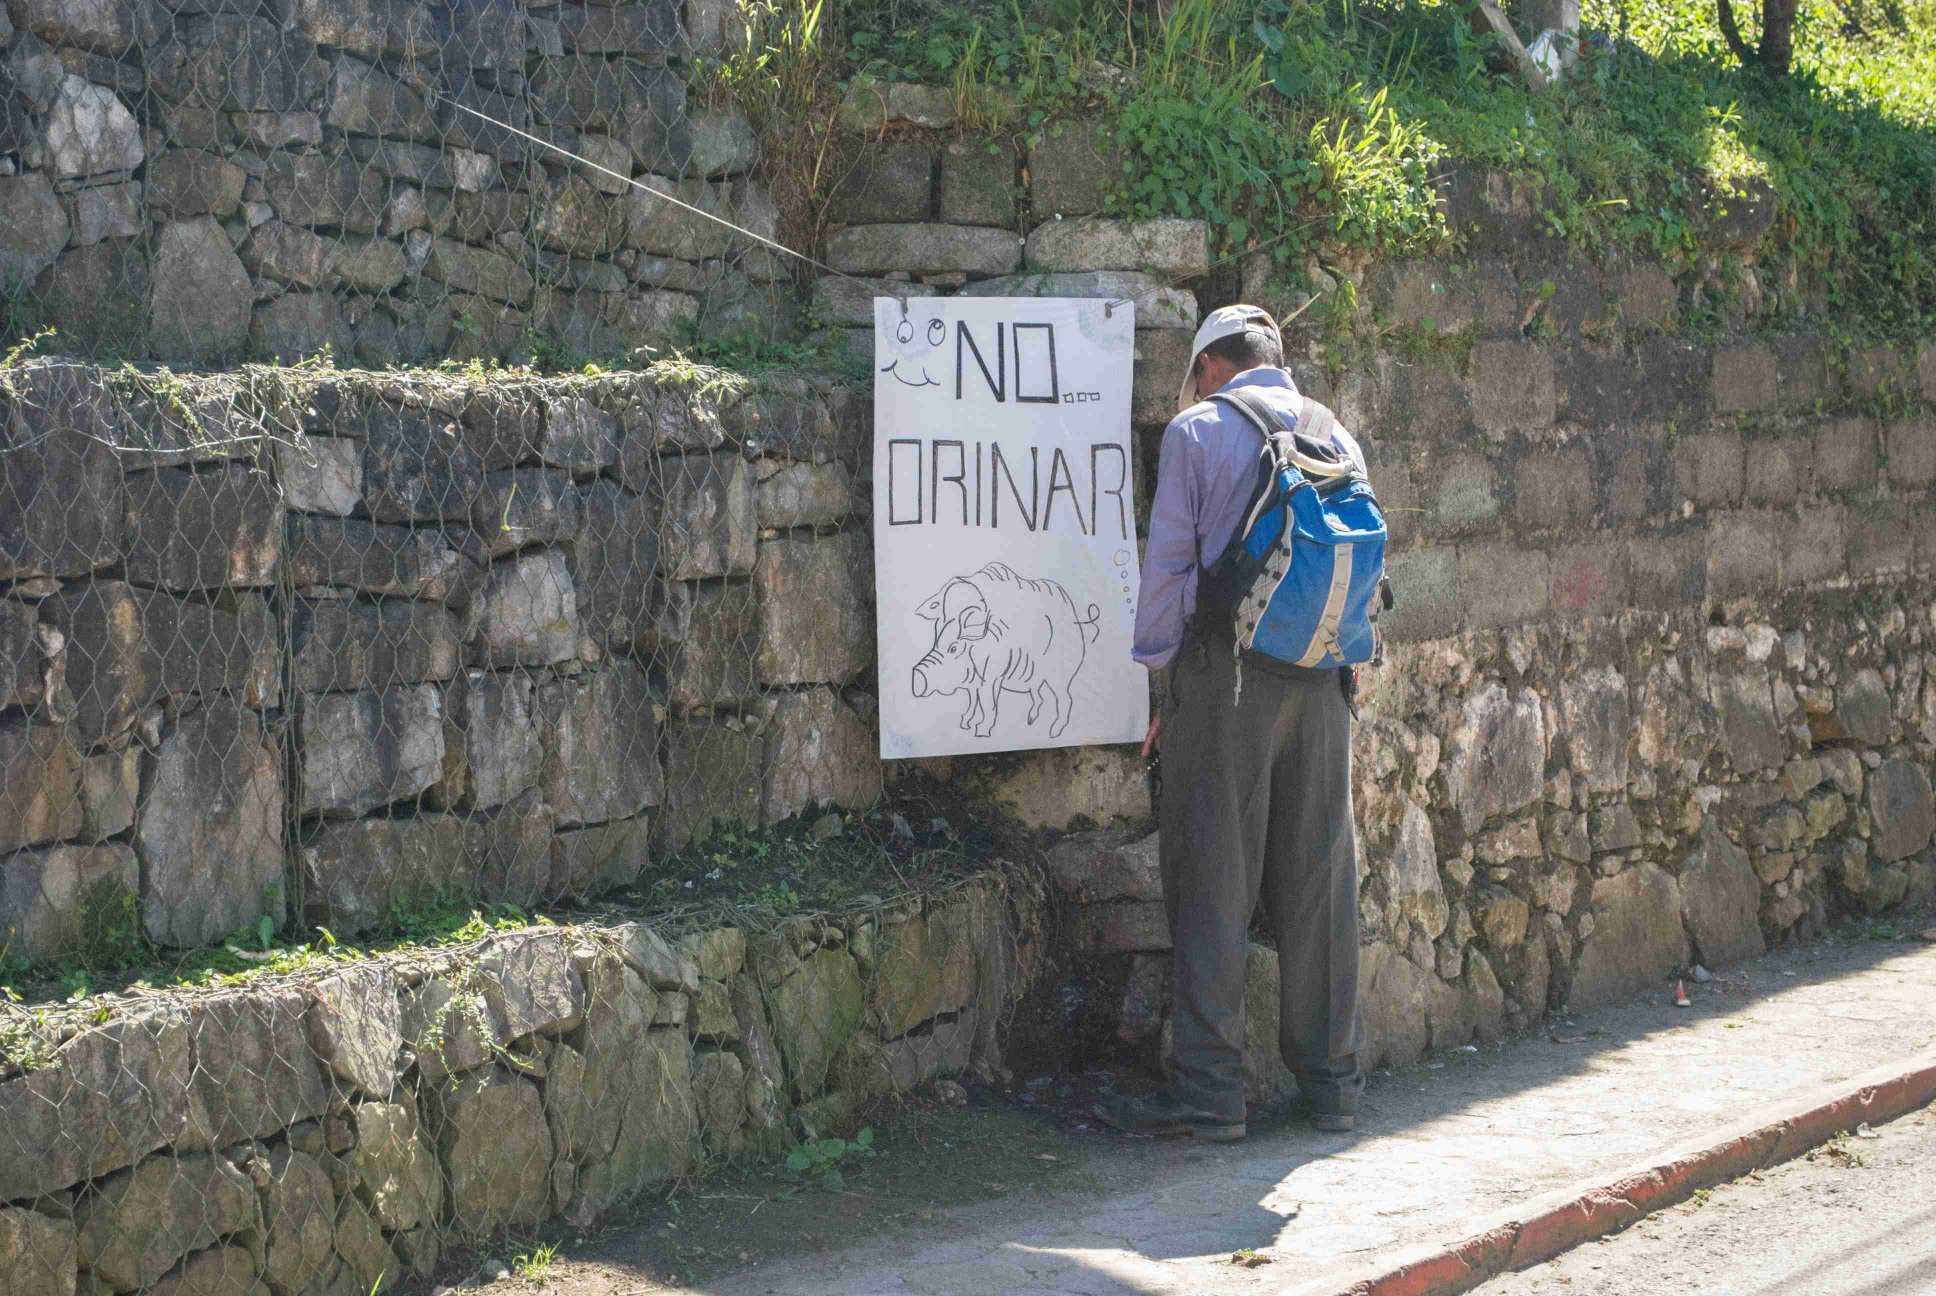 NO...
ORINAR